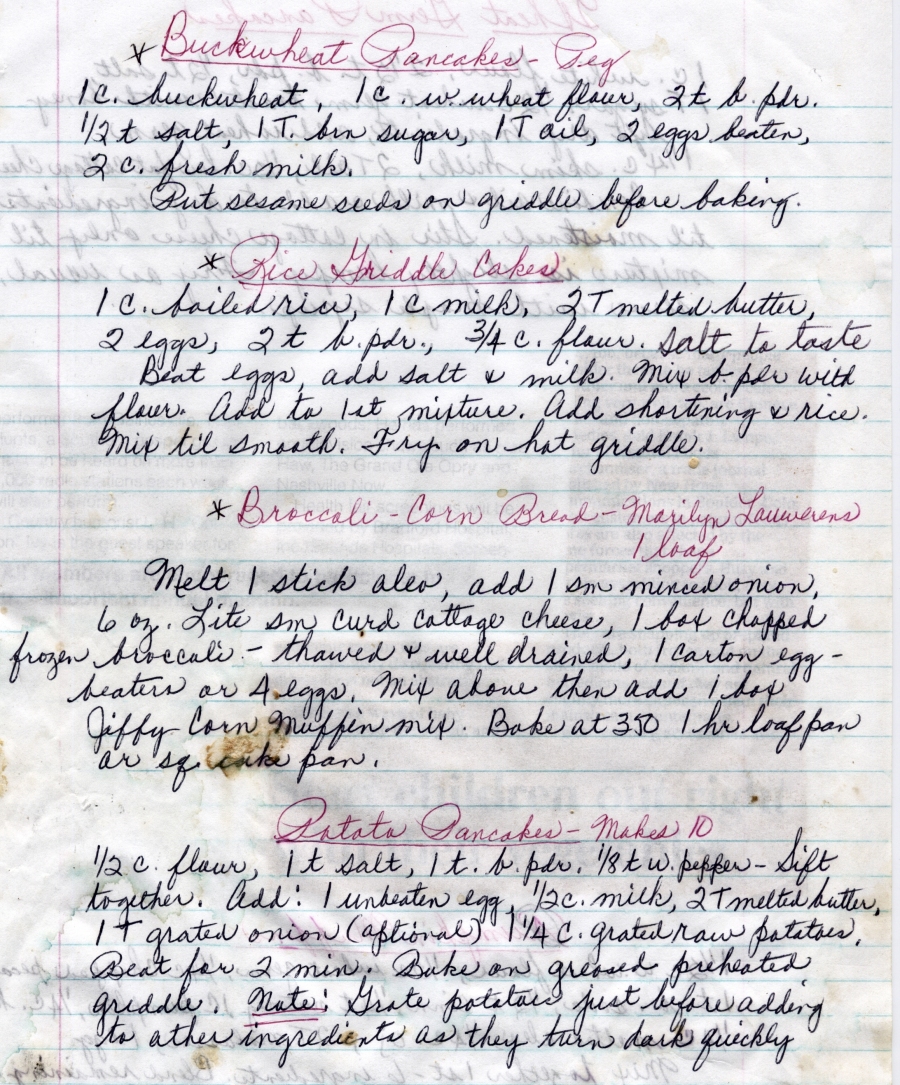 * Buckwheat Pancakes - Peg
1 c. buckwheat, 1 c. w. wheat flour, 2 t b. pdr.
1/2 t salt, 1 T. brn sugar, 1 T oil, 2 eggs beaten,
2 c. fresh milk.
Put sesame seeds on griddle before baking.
* Rice Griddle Cakes
1 c. boiled rice, 1 c milk, 2 T melted butter,
2 eggs, 2 t b. pdr., 3/4 c. flour. salt to taste
Beat eggs, add salt & milk. Mix b. pdr with
flour. Add to 1st mixture. Add shortening & rice.
Mix til smooth. Fry on hot griddle.
* Broccoli - Corn Bread - Marilyn Lauwerens
1 loaf
Melt 1 stick oleo, add 1 sm minced onion,
6 oz. Lite sm curd cottage cheese, 1 box chopped
frozen broccoli - thawed & well drained, 1 carton egg -
beaters or 4 eggs. Mix above then add 1 box
Jiffy Corn Muffin mix. Bake at 350 1 hr loaf pan
or sq. cake pan.
Potato Pancakes - Makes 10
1/2 c. flour, 1 t salt, 1 t. b. pdr. 1/8 t w. pepper - Sift
together. Add: 1 unbeaten egg, 1/2 c. milk, 2 T melted butter,
1 T grated onion (optional) 1 1/4 c. grated raw potatoes.
Beat for 2 min. Bake on greased preheated
griddle. Note: Grate potatoes just before adding
to other ingredients as they turn dark quickly